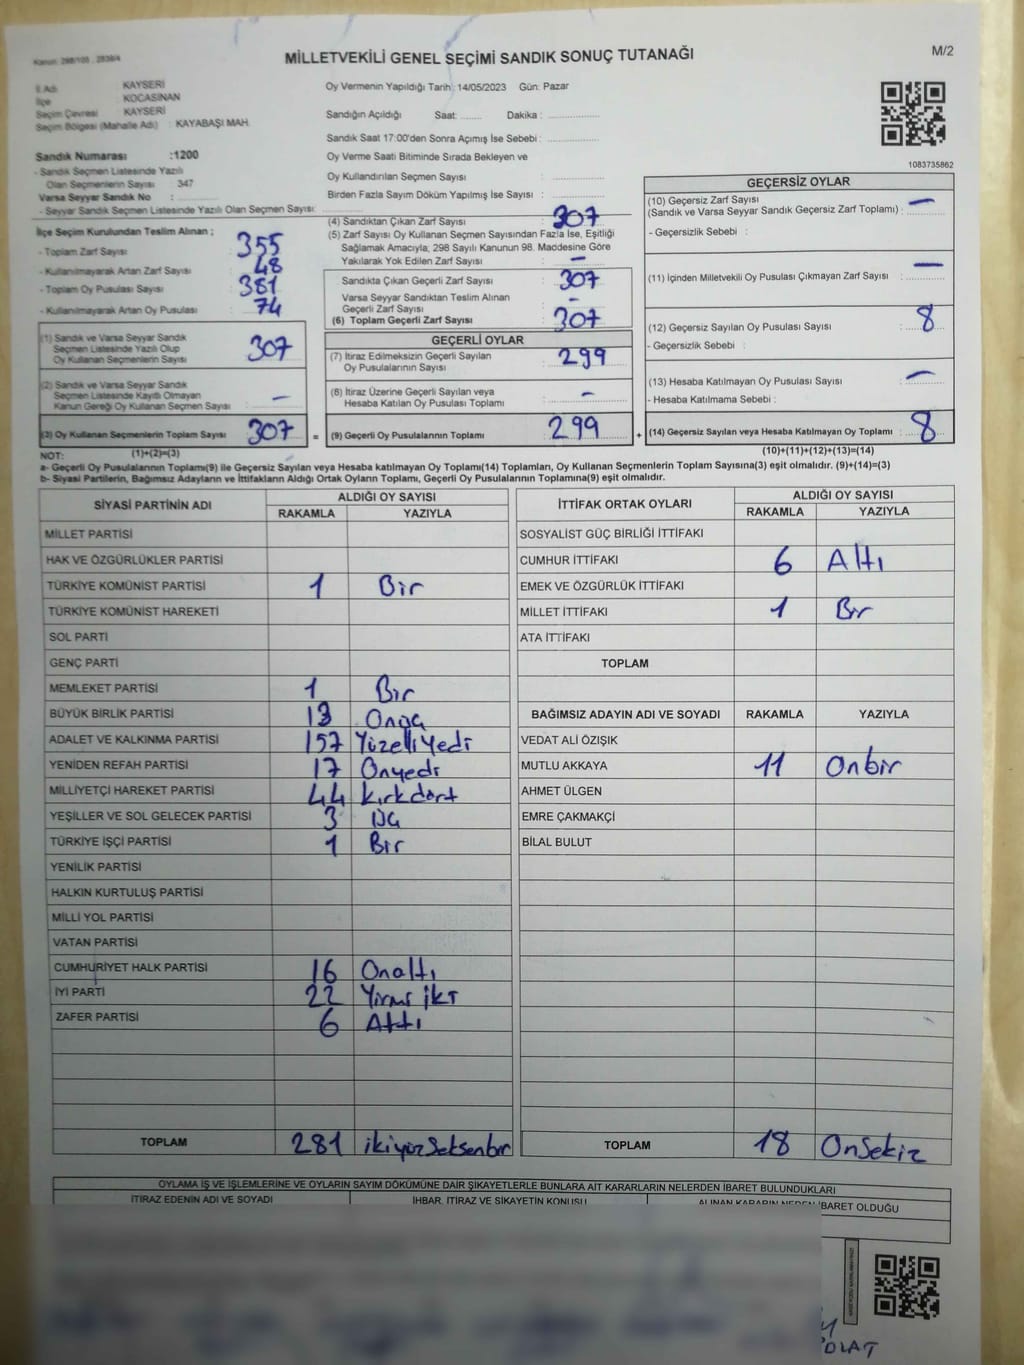 Kanun: 298/105 , 2839/4
MİLLETVEKİLİ GENEL SEÇİMİ SANDIK SONUÇ TUTANAĞI
M/2
İl Adı : KAYSERİ
İlçe : KOCASİNAN
Seçim Çevresi : KAYSERİ
Seçim Bölgesi (Mahalle Adı) : KAYABAŞI MAH.
Oy Vermenin Yapıldığı Tarih: 14/05/2023 Gün: Pazar
Sandığın Açıldığı Saat: Dakika :
Sandık Saat 17:00'den Sonra Açımış İse Sebebi :
Oy Verme Saati Bitiminde Sırada Bekleyen ve
Oy Kullandırılan Seçmen Sayısı :
Birden Fazla Sayım Döküm Yapılmış İse Sayısı :
1083735862
Sandık Numarası :1200
- Sandık Seçmen Listesinde Yazılı
Olan Seçmenlerin Sayısı : 347
Varsa Seyyar Sandık No :
- Seyyar Sandık Seçmen Listesinde Yazılı Olan Seçmen Sayısı:
İlçe Seçim Kurulundan Teslim Alınan ;
- Toplam Zarf Sayısı : 355
- Kullanılmayarak Artan Zarf Sayısı : 48
- Toplam Oy Pusulası Sayısı : 381
- Kullanılmayarak Artan Oy Pusulası : 74
(1) Sandık ve Varsa Seyyar Sandık
Seçmen Listesinde Yazılı Olup
Oy Kullanan Seçmenlerin Sayısı : 307
(2) Sandık ve Varsa Seyyar Sandık
Seçmen Listesinde Kayıtlı Olmayan
Kanun Gereği Oy Kullanan Seçmen Sayısı : -
(3) Oy Kullanan Seçmenlerin Toplam Sayısı : 307
(4) Sandıktan Çıkan Zarf Sayısı : 307
(5) Zarf Sayısı Oy Kullanan Seçmen Sayısından Fazla İse, Eşitliği
Sağlamak Amacıyla; 298 Sayılı Kanunun 98. Maddesine Göre
Yakılarak Yok Edilen Zarf Sayısı : -
Sandıkta Çıkan Geçerli Zarf Sayısı : 307
Varsa Seyyar Sandıktan Teslim Alınan
Geçerli Zarf Sayısı : -
(6) Toplam Geçerli Zarf Sayısı : 307
GEÇERLİ OYLAR
(7) İtiraz Edilmeksizin Geçerli Sayılan
Oy Pusulalarının Sayısı : 299
(8) İtiraz Üzerine Geçerli Sayılan veya
Hesaba Katılan Oy Pusulası Toplamı : -
= (9) Geçerli Oy Pusulalarının Toplamı : 299
GEÇERSİZ OYLAR
(10) Geçersiz Zarf Sayısı
(Sandık ve Varsa Seyyar Sandık Geçersiz Zarf Toplamı) : -
- Geçersizlik Sebebi :
(11) İçinden Milletvekili Oy Pusulası Çıkmayan Zarf Sayısı : -
(12) Geçersiz Sayılan Oy Pusulası Sayısı : 8
- Geçersizlik Sebebi :
(13) Hesaba Katılmayan Oy Pusulası Sayısı : -
- Hesaba Katılmama Sebebi :
+ (14) Geçersiz Sayılan veya Hesaba Katılmayan Oy Toplamı : 8
NOT: (1)+(2)=(3)
(10)+(11)+(12)+(13)=(14)
a- Geçerli Oy Pusulalarının Toplamı(9) ile Geçersiz Sayılan veya Hesaba katılmayan Oy Toplamı(14) Toplamları, Oy Kullanan Seçmenlerin Toplam Sayısına(3) eşit olmalıdır. (9)+(14)=(3)
b- Siyasi Partilerin, Bağımsız Adayların ve İttifakların Aldığı Ortak Oyların Toplamı, Geçerli Oy Pusulalarının Toplamına(9) eşit olmalıdır.
SİYASİ PARTİNİN ADI
ALDIĞI OY SAYISI
RAKAMLA YAZIYLA
MİLLET PARTİSİ
HAK VE ÖZGÜRLÜKLER PARTİSİ
TÜRKİYE KOMÜNİST PARTİSİ 1 Bir
TÜRKİYE KOMÜNİST HAREKETİ
SOL PARTİ
GENÇ PARTİ
MEMLEKET PARTİSİ 1 Bir
BÜYÜK BİRLİK PARTİSİ 13 Onüç
ADALET VE KALKINMA PARTİSİ 157 Yüzelliyedi
YENİDEN REFAH PARTİSİ 17 Onyedi
MİLLİYETÇİ HAREKET PARTİSİ 44 kırkdört
YEŞİLLER VE SOL GELECEK PARTİSİ 3 Üç
TÜRKİYE İŞÇİ PARTİSİ 1 Bir
YENİLİK PARTİSİ
HALKIN KURTULUŞ PARTİSİ
MİLLİ YOL PARTİSİ
VATAN PARTİSİ
CUMHURİYET HALK PARTİSİ 16 Onaltı
İYİ PARTİ 22 Yirmi iki
ZAFER PARTİSİ 6 Altı
TOPLAM 281 ikiyüzseksenbir
İTTİFAK ORTAK OYLARI
ALDIĞI OY SAYISI
RAKAMLA YAZIYLA
SOSYALİST GÜÇ BİRLİĞİ İTTİFAKI
CUMHUR İTTİFAKI 6 Altı
EMEK VE ÖZGÜRLÜK İTTİFAKI
MİLLET İTTİFAKI 1 Bir
ATA İTTİFAKI
TOPLAM
BAĞIMSIZ ADAYIN ADI VE SOYADI RAKAMLA YAZIYLA
VEDAT ALİ ÖZIŞIK
MUTLU AKKAYA 11 Onbir
AHMET ÜLGEN
EMRE ÇAKMAKÇİ
BİLAL BULUT
TOPLAM 18 Onsekiz
OYLAMA İŞ VE İŞLEMLERİNE VE OYLARIN SAYIM DÖKÜMÜNE DAİR ŞİKAYETLERLE BUNLARA AİT KARARLARIN NELERDEN İBARET BULUNDUKLARI
İTİRAZ EDENİN ADI VE SOYADI
İHBAR, İTİRAZ VE ŞİKAYETİN KONUSU
ALINAN KARARIN NEDEN İBARET OLDUĞU